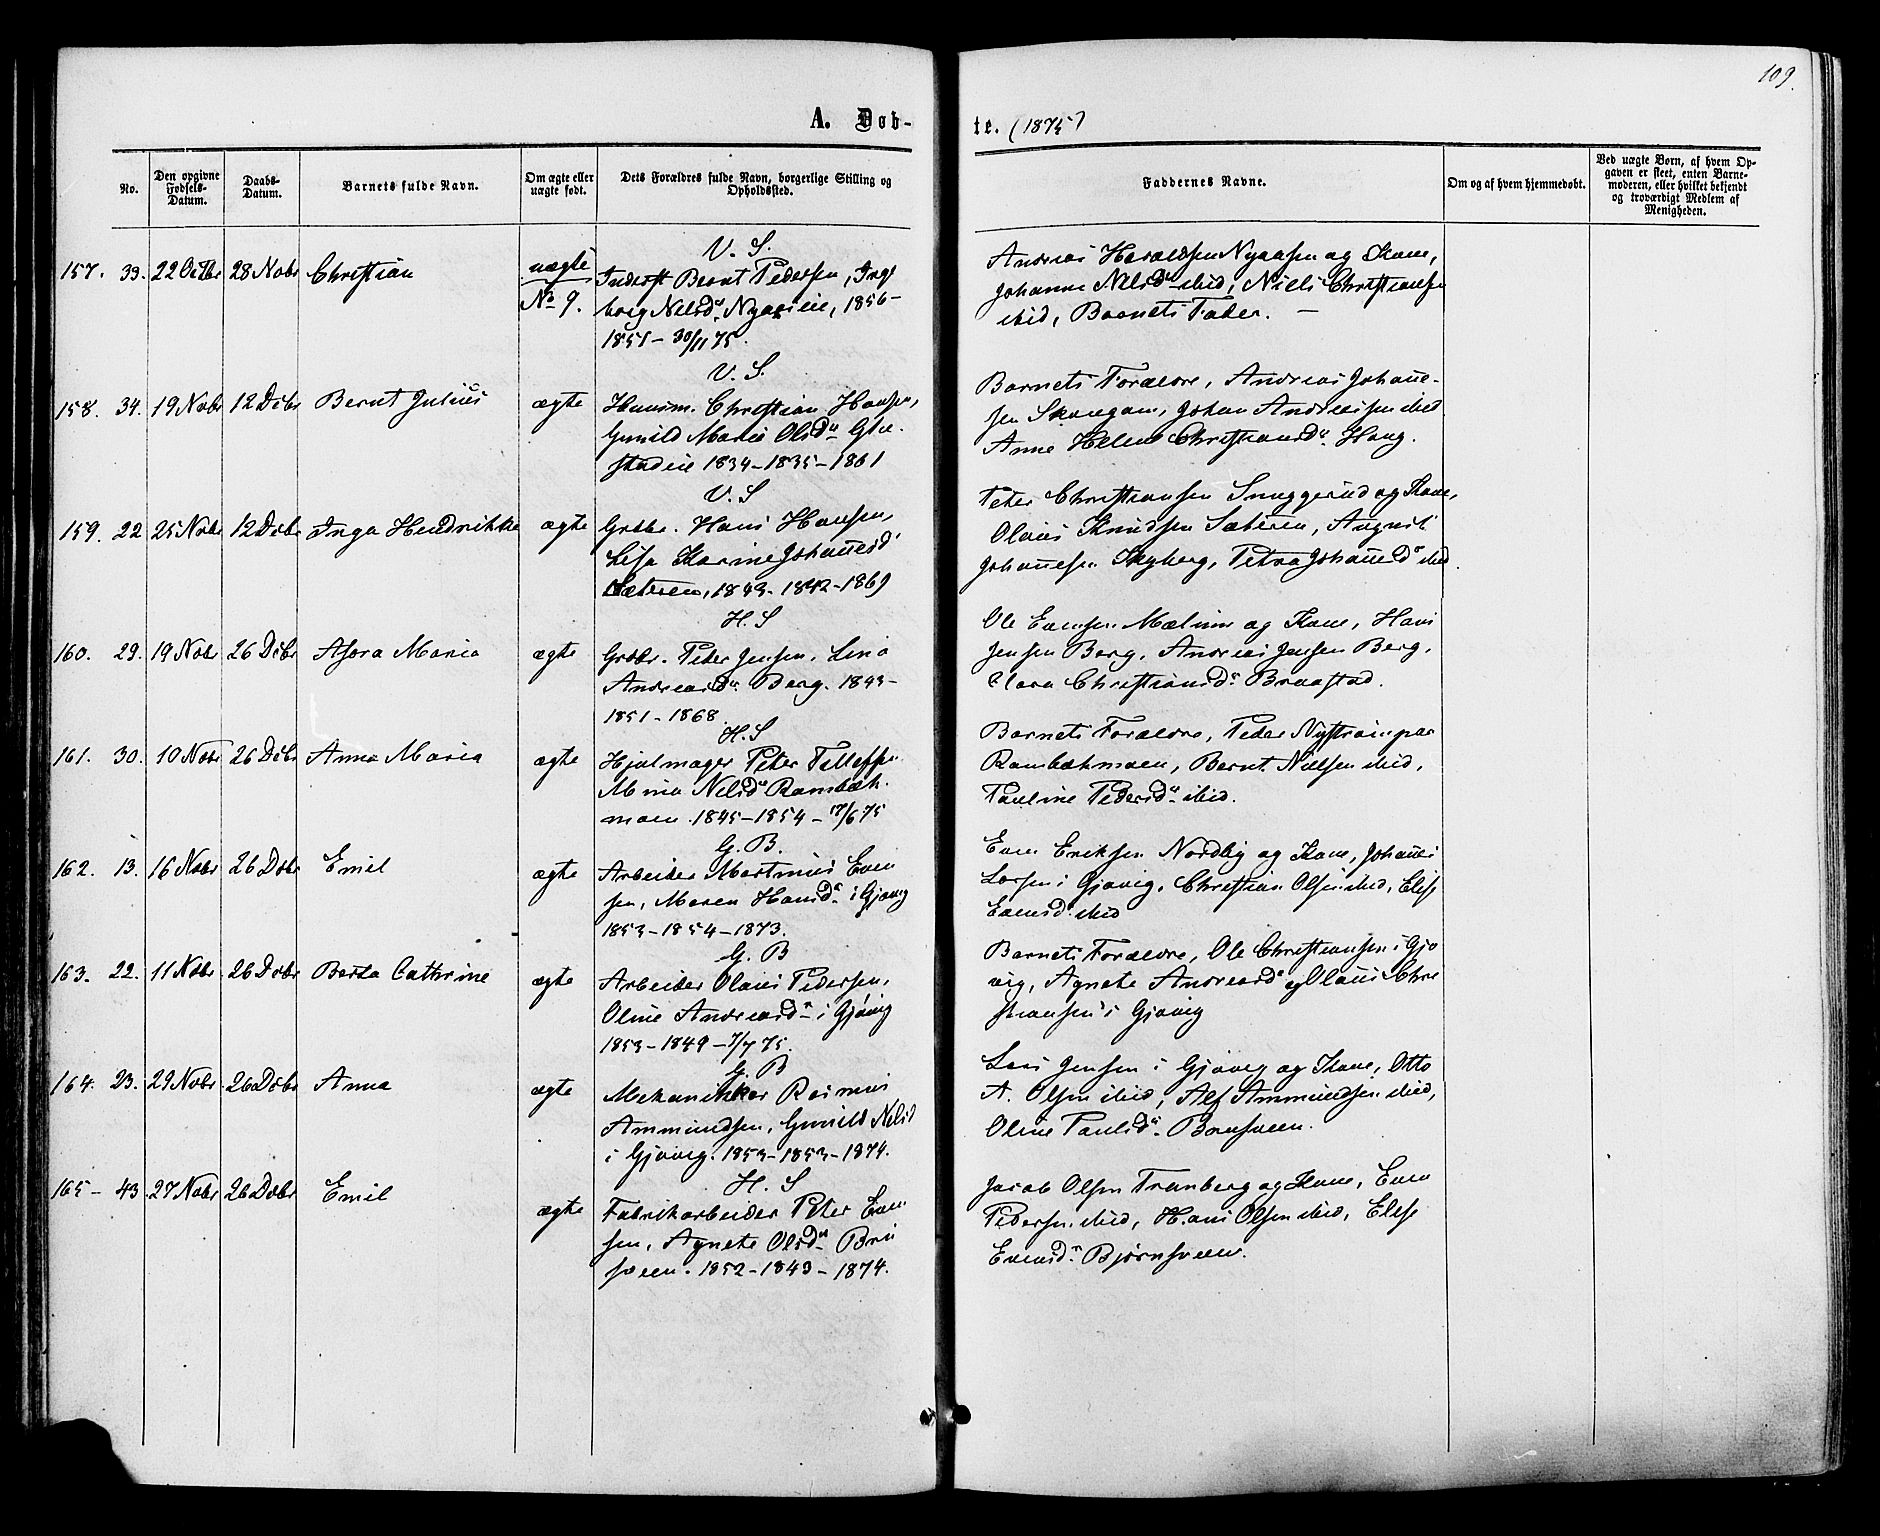 109.
A. Døb-
te. (1875)
No.
Den opgivne Fødsels-Datum.
Daabs-Datum.
Barnets fulde Navn.
Om ægte eller uægte født.
Dets Forældres fulde Navn, borgerlige Stilling og Opholdssted.
Faddernes Navne.
Om og af hvem hjemmedøbt.
Ved uægte Børn, af hvem Op-
gaven er skeet, enten Barne-
moderen, eller hvilket bekjendt
og troværdigt Medlem af
Menigheden.
V. S.
157. 39. 22 Octbr 28 Nobr Christian uægte No 9.
Inderst Bernt Pedersen, Inge
borg Nelsd. Nyøeie, 1856-
1851 - 30/11 75.
Andreas Haraldsen Nyaasen og Kone,
Johanne Nilsd. ibid, Niels Christiansen
ibid, Barnets Fader. -
V. S.
158. 34. 19 Nobr 12 Dcbr Bernt Julius ægte
Husm. Christian Hansen,
Gunild Marie Olsd.
1834 - 1835 - 1861
Barnets Forældre, Andreas Johanne-
sen, Johan Andreassen ibid
Anne Helene Christiansd. Haug.
V. S
159. 22 25 Nobr 12 Dcbr Inga Hendrikke ægte
Grdbr. Hans Hansen,
Lisa Karine Johannesd.
Sæteren, 1843 - 1842 - 1869
Peter Christiansen Snuggerud og Kone,
Olaus Knudsen Sæteren, August
Johannesen Skyberg, Petra Johannesd. ibid.
H. S
160. 29. 19 Nobr 26 Dcbr Asora Maria ægte
Grdbr. Peder Jensen, Lina
Andreasd. Berg. 1843 -
1851 - 1868.
Ole Evensen Mælum og Kone, Hans
Jensen Berg, Andreas Jensen Berg,
Clara Christiansd. Braastad.
H. S
161. 30. 10 Nobr 26 Dcbr Anna Maria ægte
Hjulmager Peter Tollefsen
Mina Nelsd. Rambæk-
moen. 1845 - 1854 - 17/6 75
Barnets Forældre, Peder Nystrøm paa
Rambækmoen, Bernt Nielsen ibid,
Pauline Pedersd. ibid.
G. B.
162. 13. 16 Nobr 26 Dcbr Emil ægte
Arbeider Martinus Even
sen, Maren Hansd. i Gjøvig
1853 - 1854 - 1873.
Even Eriksen Nordlig og Kone, Johannes
Larsen i Gjøvig, Christian Olsen ibid, Elise
Evensd. ibid
G. B
163. 22. 11 Nobr 26 Dcbr Berta Cathrine ægte
Arbeider Olaus Pedersen,
Oline Andreasd. i Gjøvig
1853 - 1849 - 7/7 75.
Barnets Forældre, Ole Christiansen i Gjø
vig, Agnete Andreasd. og Olaus Chri
stiansen i Gjøvig
G. B
164. 23. 29 Nobr 26 Dcbr Anna ægte
Mekanikker Rasmus
Ammundsen, Gunild Nelsd
i Gjøvig. 1853 - 1853 - 1874.
Lars Jensen i Gjøvig og Kone, Otto
A. Olsen ibid, Alf Ammundsen ibid,
Oline Paulsd. Brusveen.
H. S
165 - 43. 27 Nobr 26 Dcbr Emil ægte
Fabrikarbeider Peter Even
sen, Agnete Olsd. Bru
sveen. 1852 - 1843 - 1874.
Jacob Olsen Tranberg og Kone, Even
Pedersen ibid, Hans Olsen ibid, Elise
Evensd. Bjørnsveen.